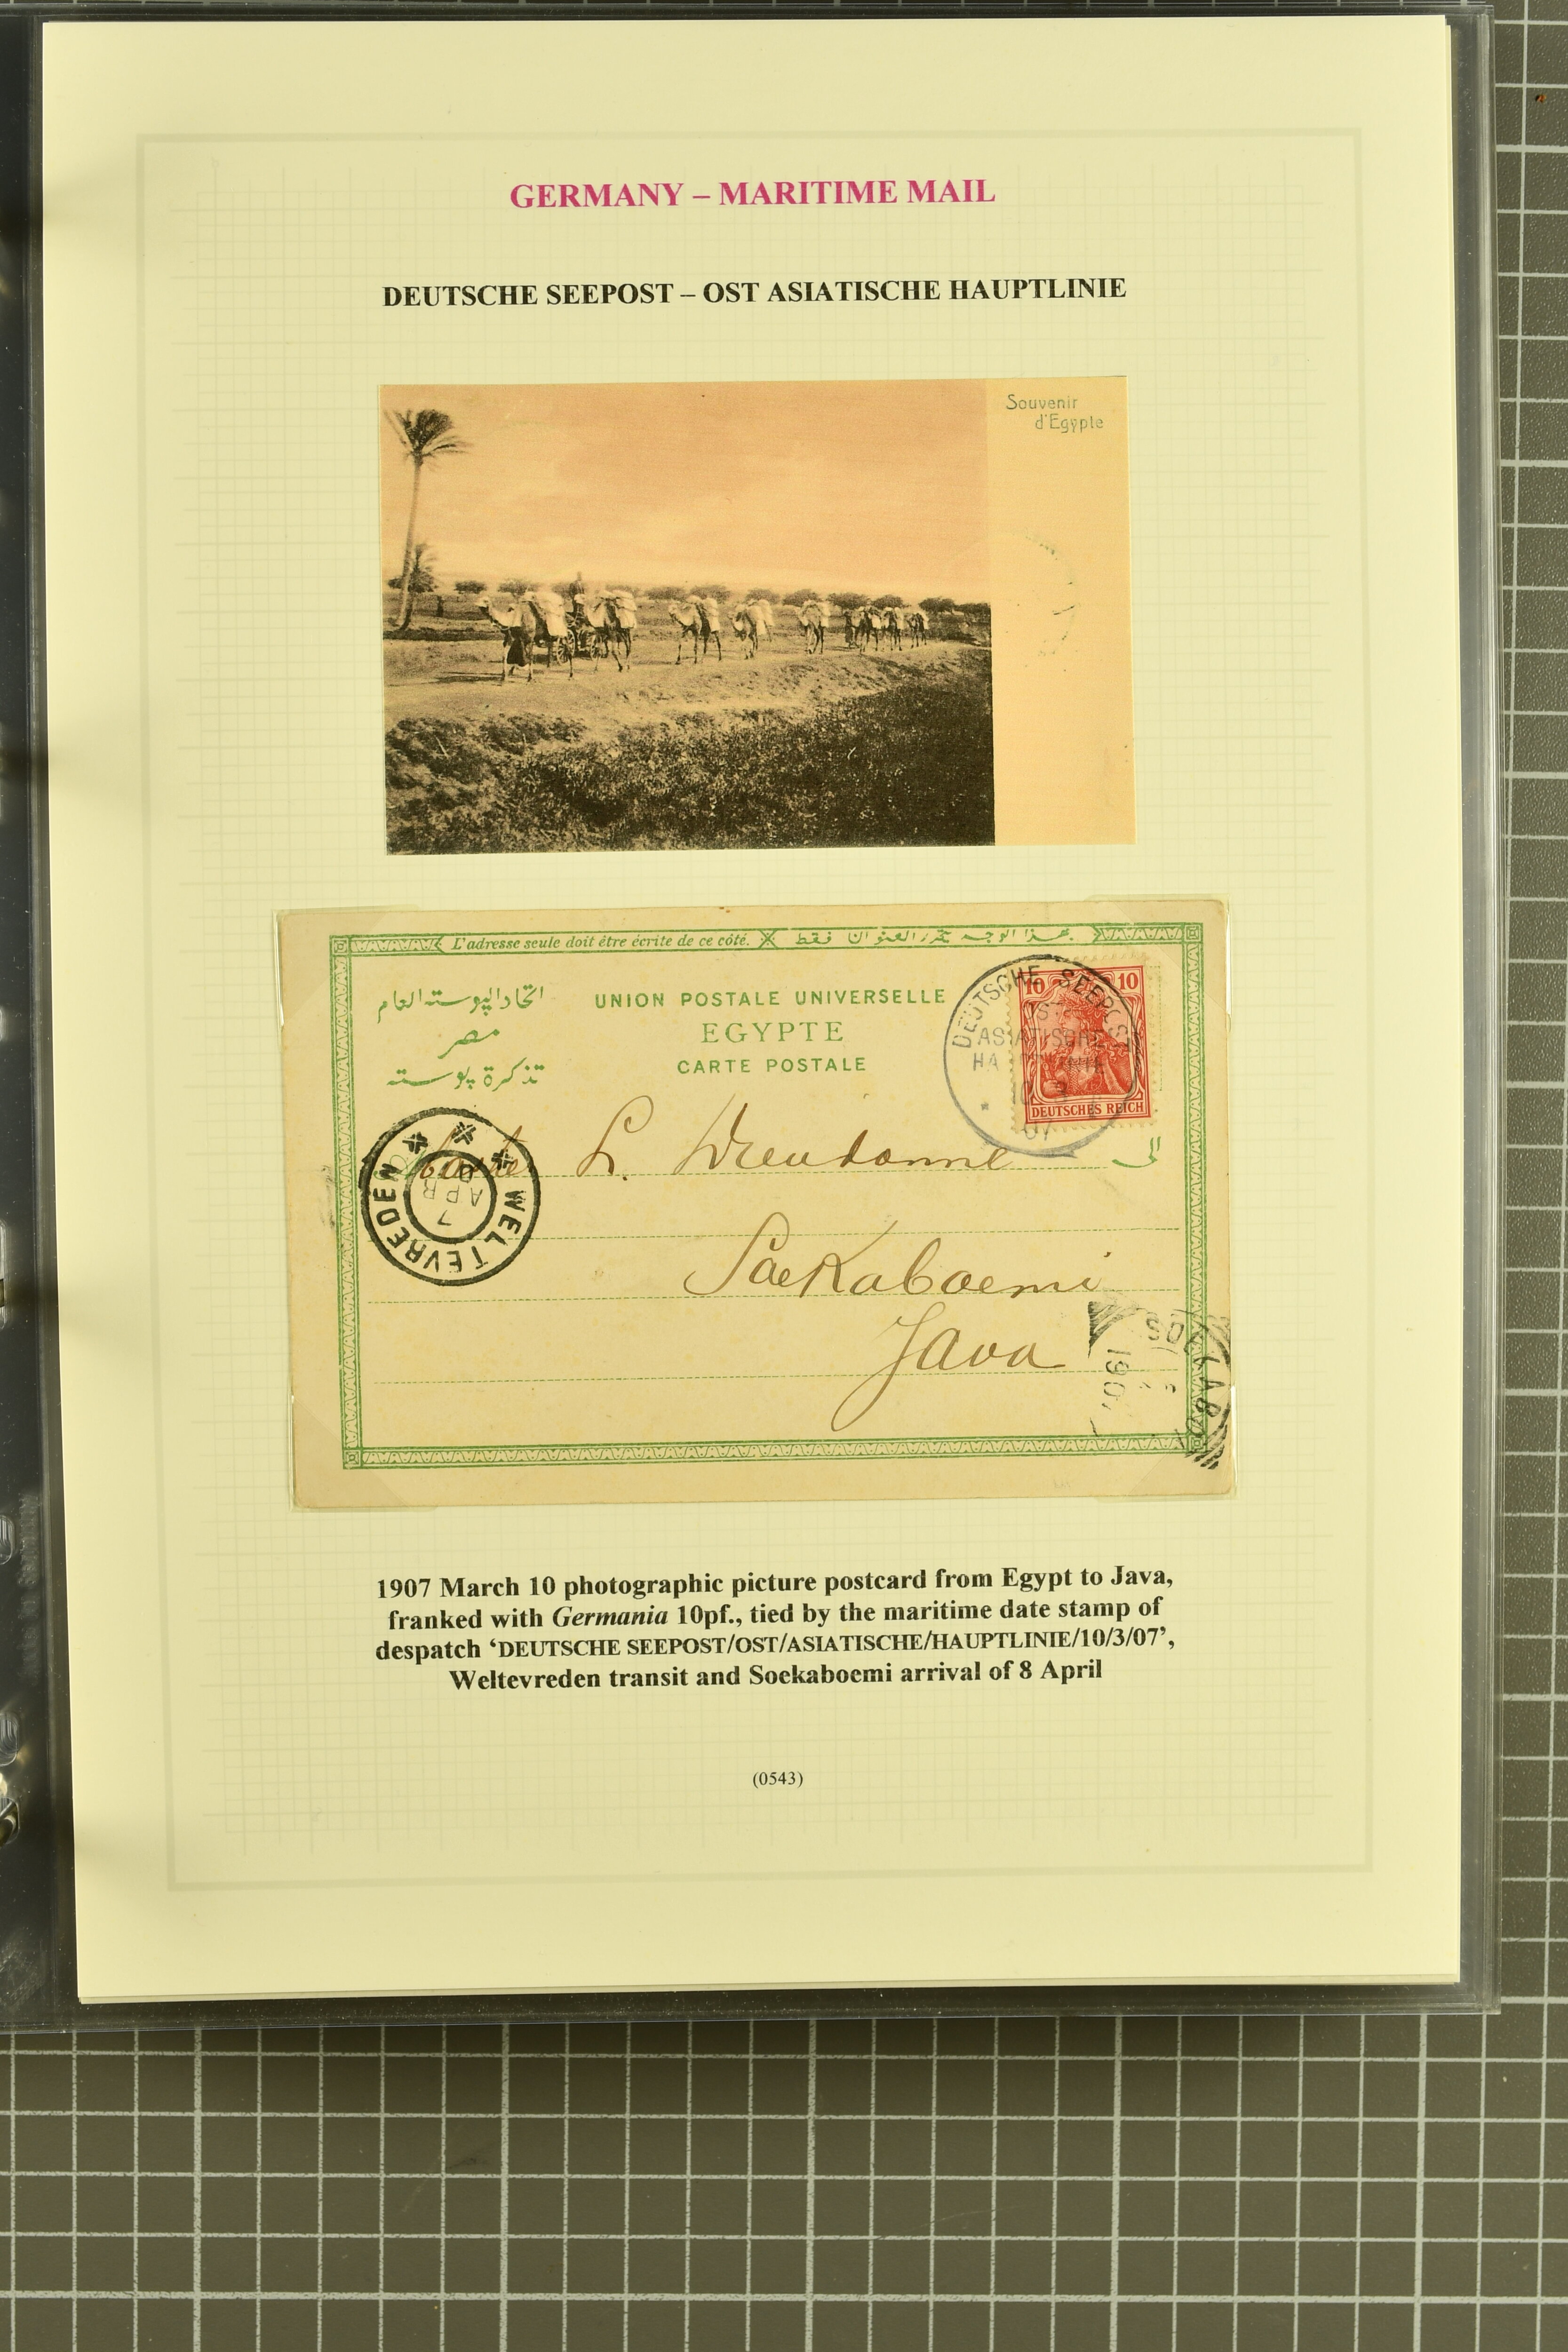 GERMANY – MARITIME MAIL
DEUTSCHE SEEPOST – OST ASIATISCHE HAUPTLINIE
Souvenir
d'Egypte
L'adresse seule doit être écrite de ce côté.
هذا الوجه محرر العنوان فقط
UNION POSTALE UNIVERSELLE
EGYPTE
CARTE POSTALE
اتحاد البوسته العام
مصر
تذكرة بوسته
DEUTSCHE SEEPOST
ASIATISCHE
10 3
07
10 10
DEUTSCHES REICH
الى
WELTEVREDEN
7
APR
L.
Soekaboemi
Java
SOEKABO
190
1907 March 10 photographic picture postcard from Egypt to Java,
franked with Germania 10pf., tied by the maritime date stamp of
despatch ‘DEUTSCHE SEEPOST/OST/ASIATISCHE/HAUPTLINIE/10/3/07’,
Weltevreden transit and Soekaboemi arrival of 8 April
(0543)